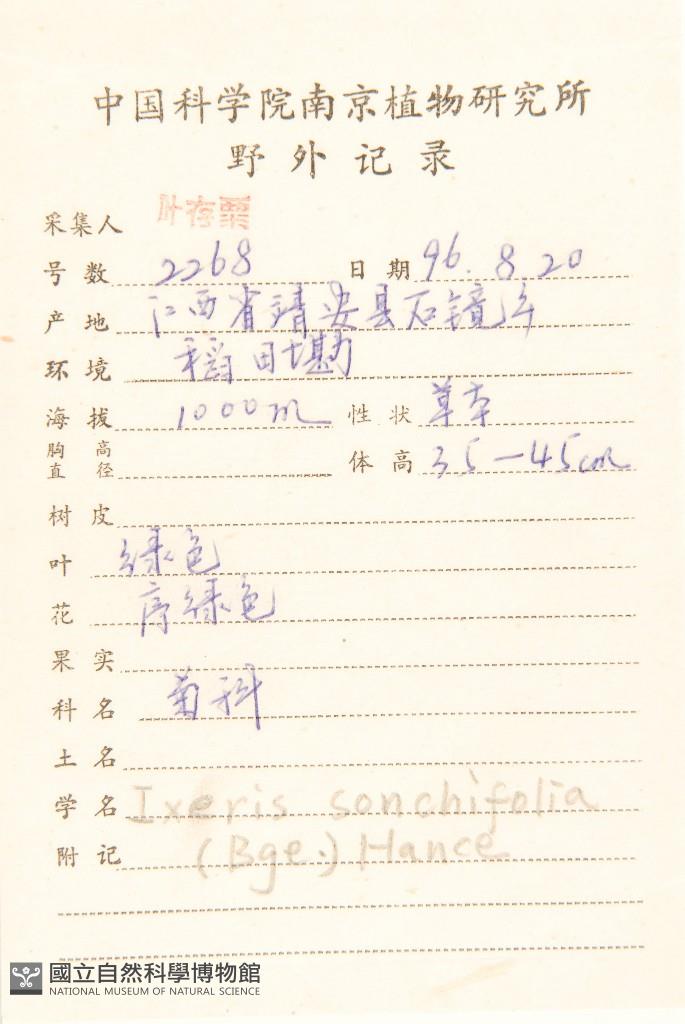 中国科学院南京植物研究所
野外记录
采集人 叶存粟
号数 2268 日期 96.8.20
产地 江西省靖安县石镜
环境 稻田墈
海拔 1000m 性状 草本
胸高直径 体高 35-45cm
树皮
叶 绿色
花 序绿色
果实
科名 菊科
土名
学名 Ixeris sonchifolia
附记 (Bge.) Hance
國立自然科學博物館
NATIONAL MUSEUM OF NATURAL SCIENCE